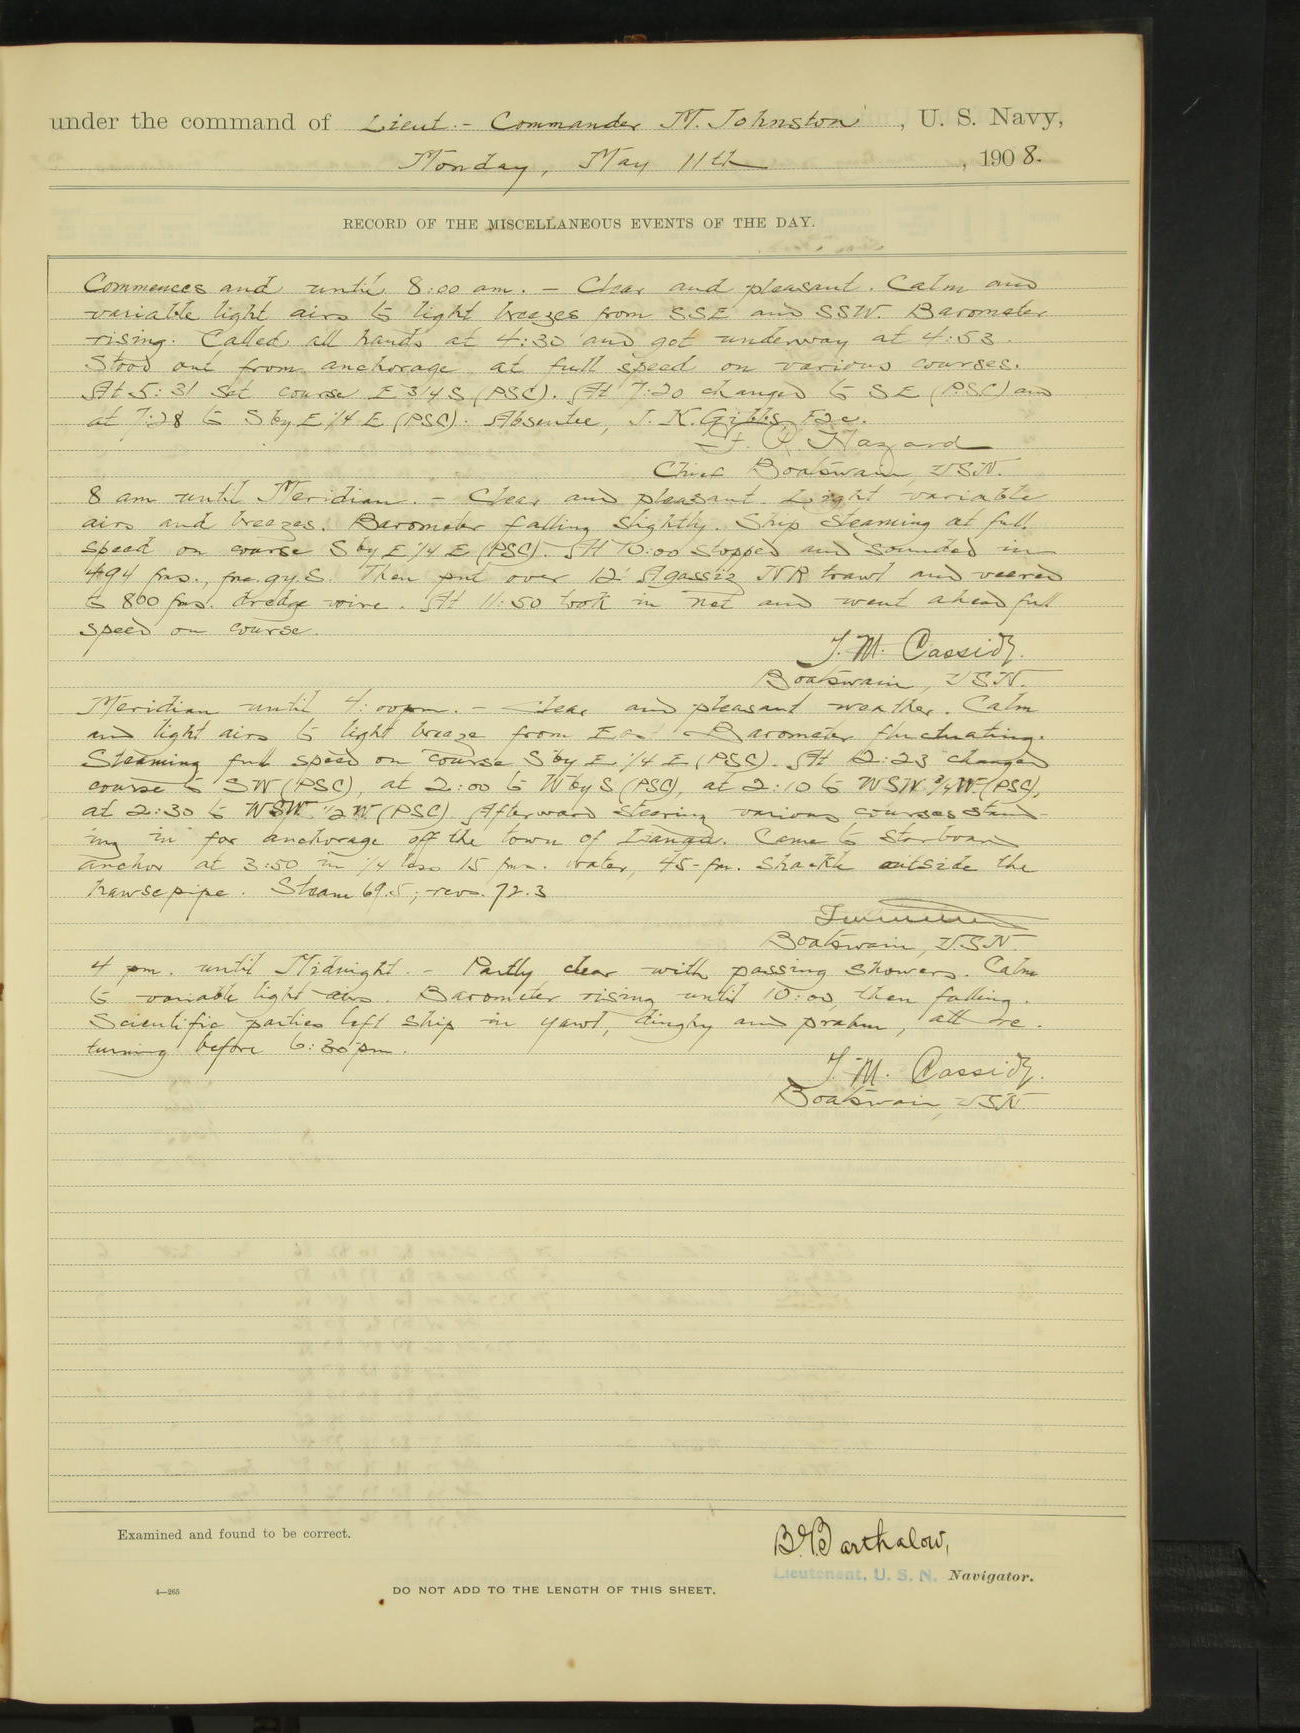 under the command of Lieut.- Commander M. Johnston, U. S. Navy,
Monday, May 11th, 1908.
RECORD OF THE MISCELLANEOUS EVENTS OF THE DAY.
Commences and until 8:00 am. - Clear and pleasant. Calm and
variable light airs to light breezes from SSE and SSW. Barometer
rising. Called all hands at 4:30 and got underway at 4:53.
Stood out from anchorage at full speed on various courses.
At 5:31 set course E 3/4 S (PSC). At 7:20 changed to SE (PSC) and
at 7:28 to S by E 1/4 E (PSC). Absentee, J. K. Gibbs, F2c.
Hazard
Chief Boatswain, USN.
8 am until Meridian. - Clear and pleasant. Light variable
airs and breezes. Barometer falling slightly. Ship steaming at full
speed on course S by E 1/4 E (PSC). At 10:00 stopped and sounded in
494 fms., fne. gy. S. Then put over 12' Agassiz NR trawl and veered
to 800 fms. dredge wire. At 11:50 took in net and went ahead full
speed on course.
J. M. Cassidy.
Boatswain, USN.
Meridian until 4:00 pm. - Clear and pleasant weather. Calm
and light airs to light breeze from East. Barometer fluctuating.
Steaming full speed on course S by E 1/4 E (PSC). At 12:23 changed
course to SW (PSC), at 2:00 to W by S (PSC), at 2:10 to WSW 3/4 W (PSC),
at 2:30 to WSW 1/2 W (PSC). Afterward steering various courses stand-
ing in for anchorage off the town of Lianga. Came to starboard
anchor at 3:50 in 1/4 less 15 fms. water, 45-fm. shackle outside the
hawsepipe. Steam 69.5; revs. 72.3
Boatswain, USN.
4 pm. until Midnight. - Partly clear with passing showers. Calm
to variable light airs. Barometer rising until 10:00, then falling.
Scientific parties left ship in yawl, dinghy and praam, all re-
turning before 6:30 pm.
J. M. Cassidy.
Boatswain, USN
Examined and found to be correct.
B. Barthalow,
Lieutenant, U. S. N. Navigator.
4—265
DO NOT ADD TO THE LENGTH OF THIS SHEET.